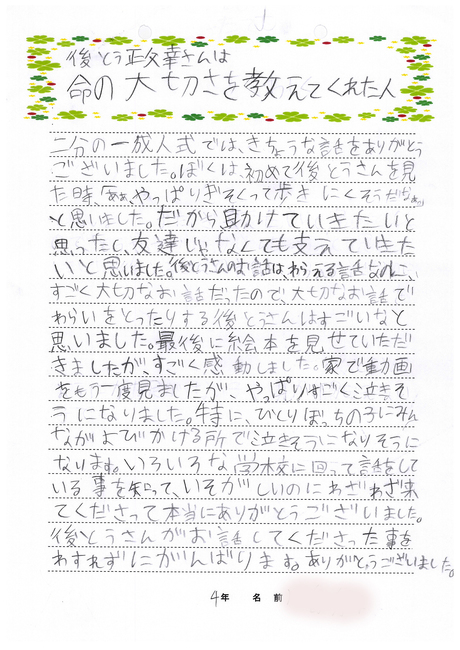 後とう正幸さんは
命の大切さを教えてくれた人
二分の一成人式では、きちょうな話をありがとう
ございました。ぼくは、初めて後とうさんを見
た時、あぁ、やっぱりぎそくって歩きにくそうだなぁ。
と思いました。だから助けていきたいと
思ったし、友達じゃなくても支えていきた
いと思いました。後とうさんのお話は、わらえる話なのに、
すごく大切なお話だったので、大切なお話で
わらいをとったりする後とうさんはすごいなと
思いました。最後に絵本を見せていただ
きましたが、すごく感動しました。家で動画
をもう一度見ましたが、やっぱりすごく泣きそ
うになりました。特に、ひとりぼっちの子にみん
ながよびかける所で泣きそうになりそうに
なります。いろいろな学校に回って話をして
いる事を知って、いそがしいのにわざわざ来
てくださって本当にありがとうございました。
後とうさんがお話してくださった事を
わすれずにがんばります。ありがとうございました。
4年 名前